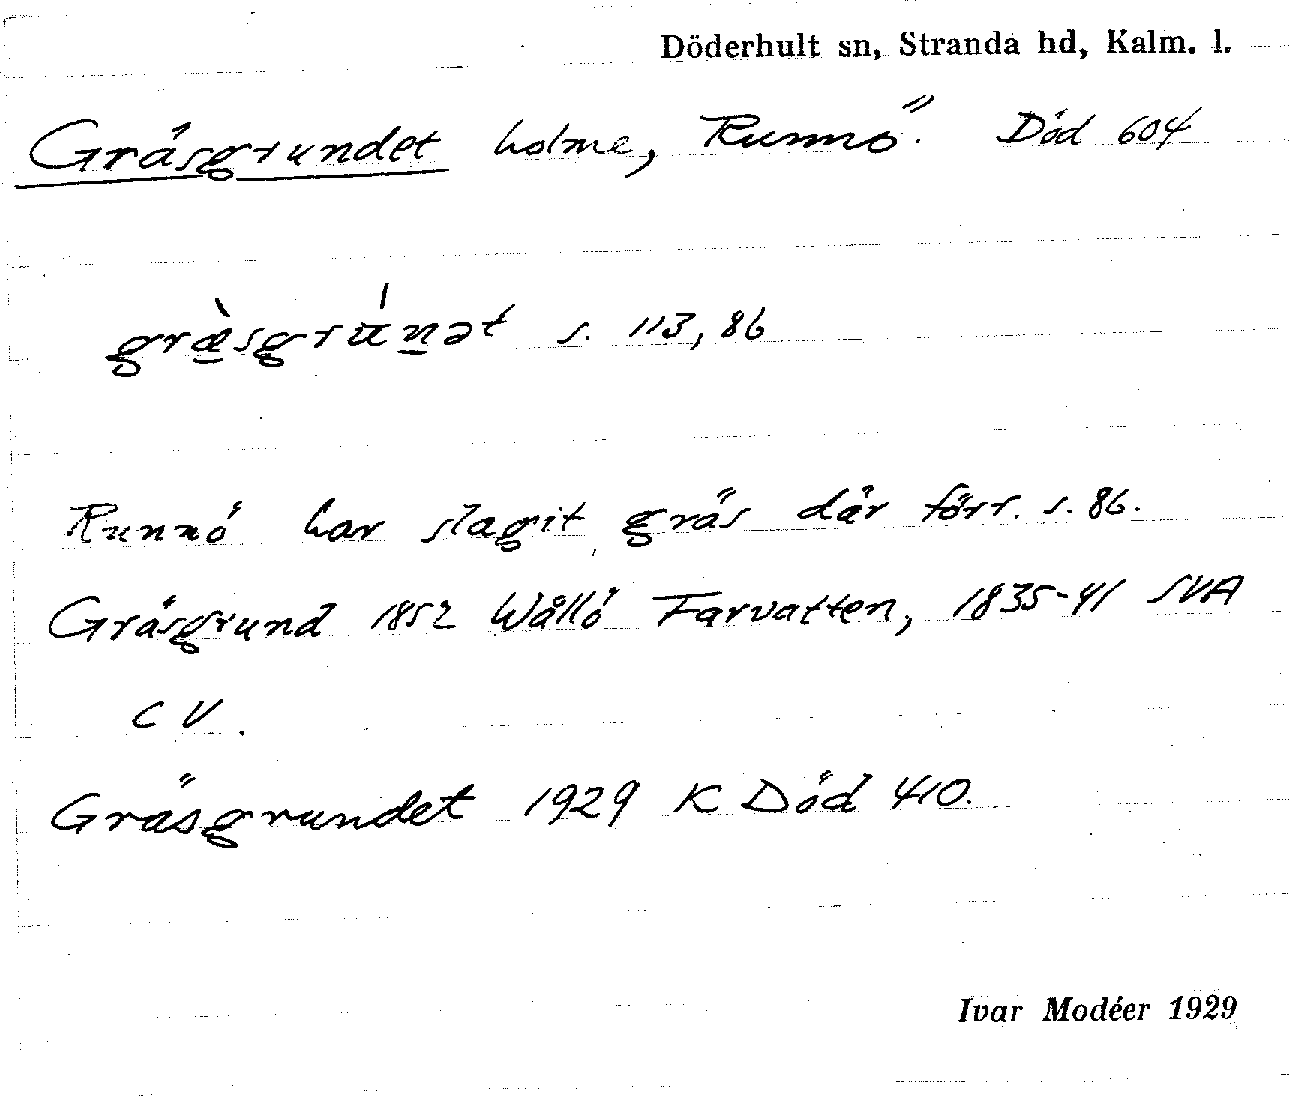 Döderhult sn, Stranda hd, Kalm. l.
Gräsgrundet holme, Runnö. Död 604
græ̀sgrúnət s. 113, 86
Runnö har slagit gräs där förr. s. 86.
Gräsgrund 1852 Wållö Farvatten, 1835-41 SVA
CV.
Gräsgrundet 1929 K Död 410.
Ivar Modéer 1929